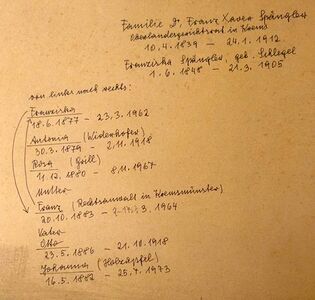 Familie Dr. Franz Xaver Spängler
Oberlandesgerichtsrat in Krems
10.4.1839 – 24.1.1912
Franziska Spängler, geb. Schlegel
1.6.1848 – 21.3.1905
von links nach rechts:
Franziska
18.6.1877 – 23.3.1962
Antonia (Widenhofer)
30.3.1879 – 2.11.1918
Rosa (Grill)
11.12.1880 – 8.11.1967
Mutter
Franz (Rechtsanwalt in Kremsmünster)
20.10.1883 – 1964
Vater
Otto
23.5.1886 – 21.10.1918
Johanna (Holzapfel)
16.5.1882 – 25.7.1973